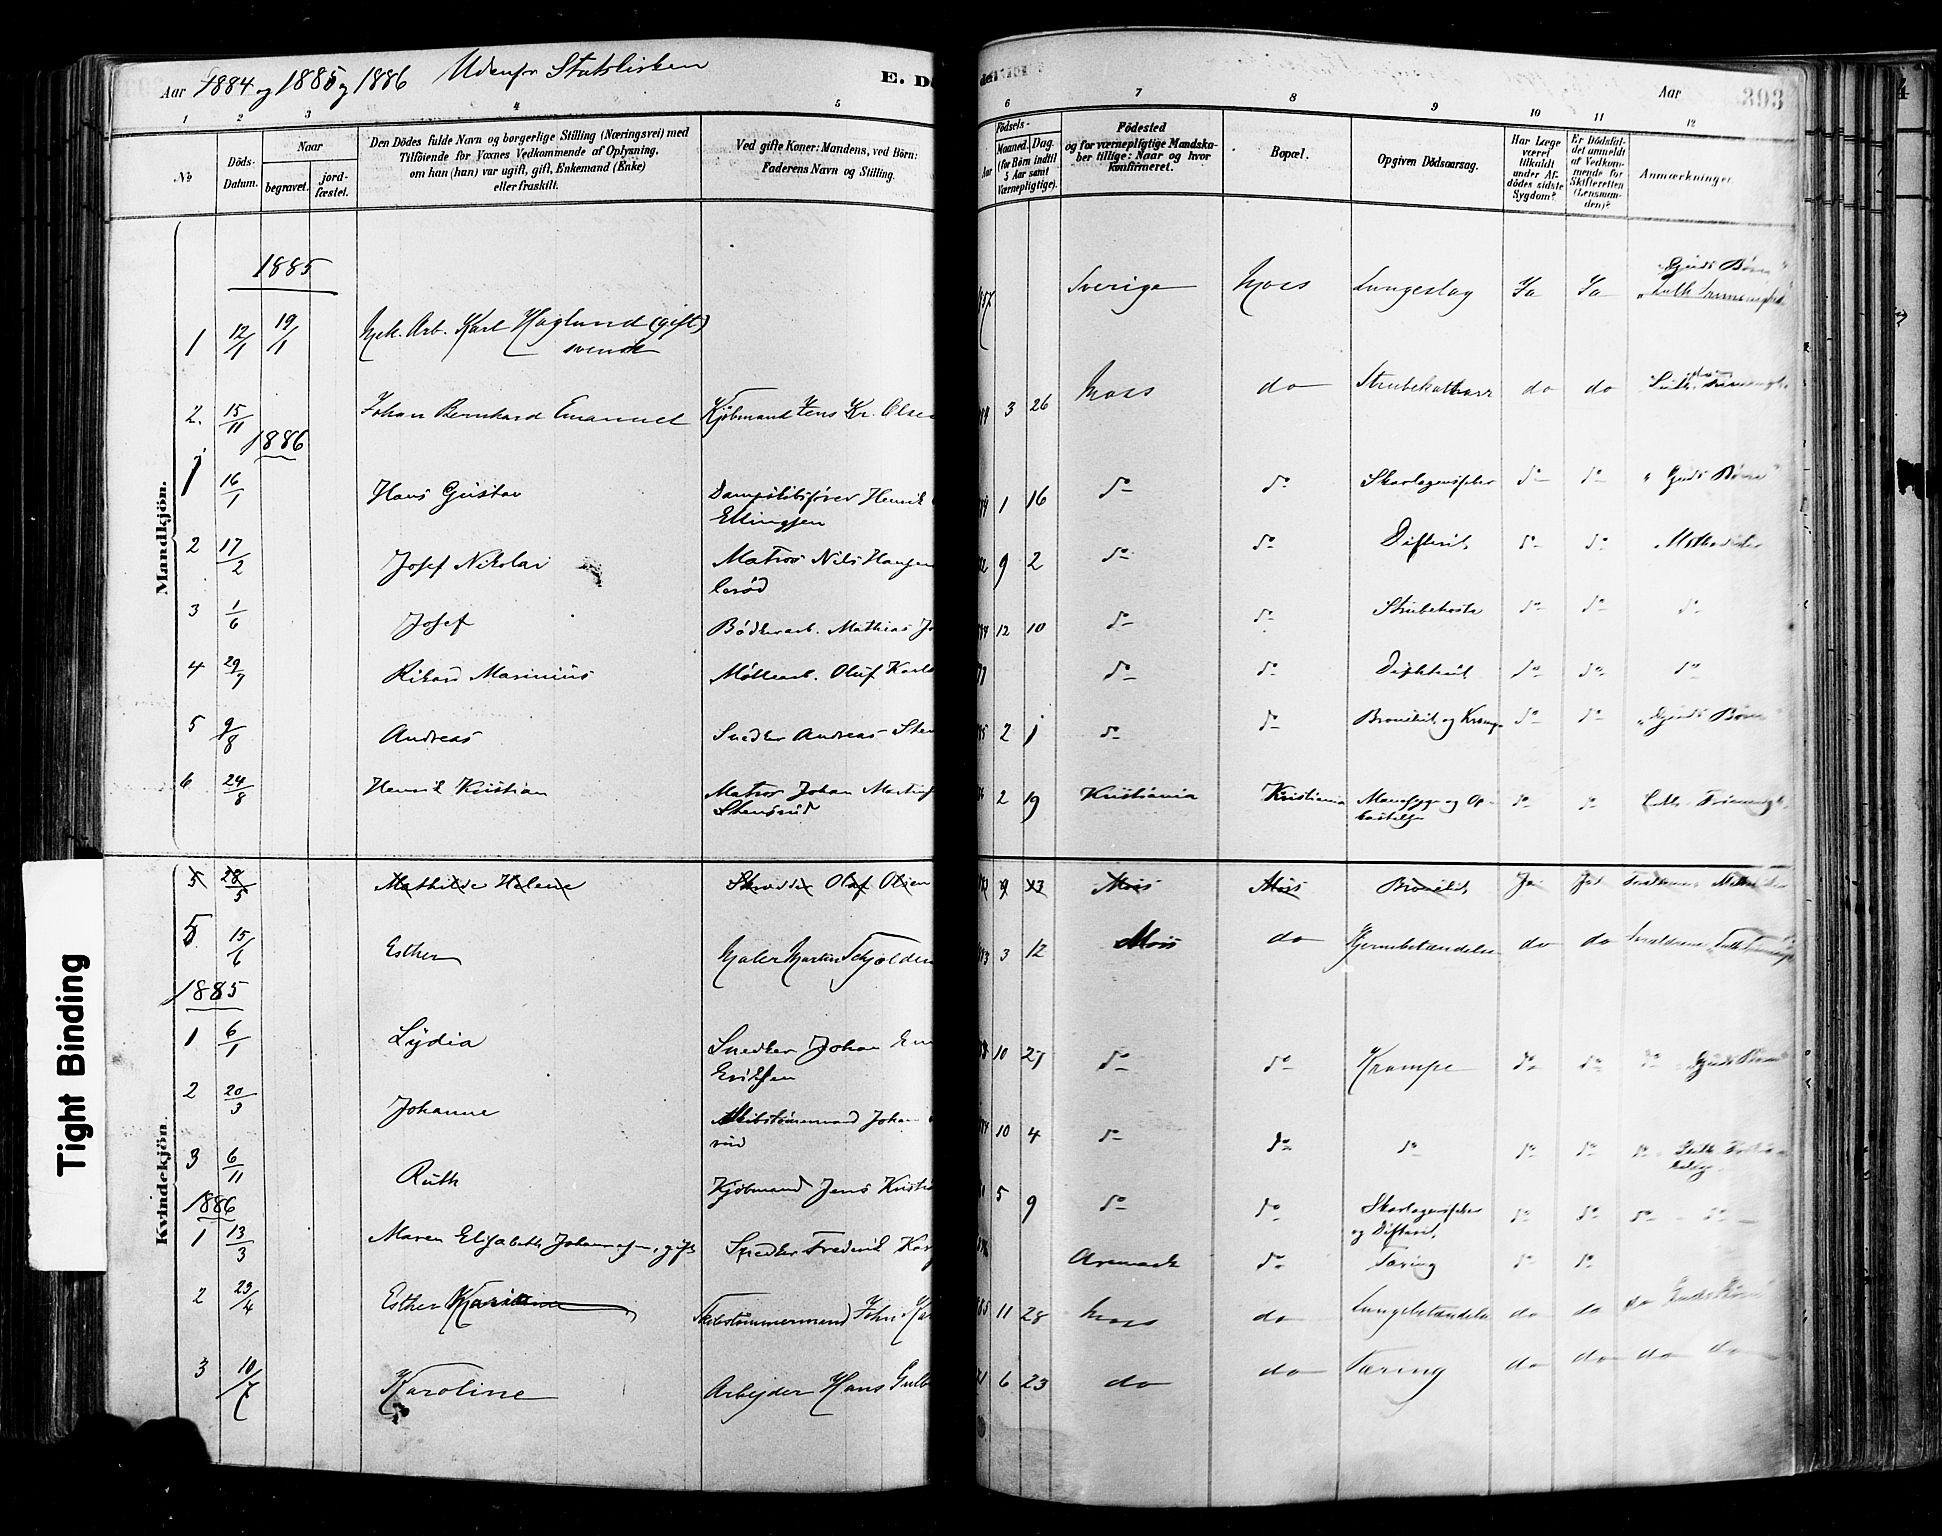 Aar 1884 og 1885 og 1886 Udenfor Statskirken
E. D
Aar 393
1 2 3 4 5
6 7 8 9 10 11 12
No
Döds-Datum.
Naar
begravet.
jord-fæstet.
Den Dödes fulde Navn og borgerlige Stilling (Næringsvei) med
Tilföiende for Voxnes Vedkommende af Oplysning,
om han (hun) var ugift, gift, Enkemand (Enke)
eller fraskilt.
Ved gifte Koner: Mandens, ved Börn:
Faderens Navn og Stilling.
Födsels-
Aar
Maaned. Dag
(for Börn indtil
5 Aar samt
Værnepligtige).
Födested
og for værnepligtige Mandska-
ber tillige: Naar og hvor
Konfirmeret.
Bopæl.
Opgiven Dödsaarsag.
Har Læge
været
tilkaldt
under Af-
dödes sidste
Sygdom?
Er Dödsfal-
det anmeldt
af Vedkom-
mende for
Skifteretten
(Lensman-
den)?
Anmærkninger.
Mandkjön.
1885
1 12/1 19/1 Mek. Arb. Karl Haglund (gift) svensk Sverige Moss Lungeslag Ja Ja "Guds Börn"
2. 15/11 Johan Bernhard Emanuel Kjöbmand Jens Kr. Olse 3 26 Moss do do do
1886
1 16/1 Hans Gustav Dampskibsfører Henrik Ellingsen 1 16 do do Skarlagensfeber do do "Guds Börn"
2 17/2 Josef Nikolai Matros Nils Hansen 9 2 do do Difterit do do Methodister
3 1/6 Josef Bödkerarb. Mathias Jo 12 10 do do Strubehoste do do do
4 29/7 Rikard Marinius Möllearb. Oluf Karls do do Diphterit do do do
5 9/8 Andreas Snedker Andreas Sten 2 1 do do Bronchit og Krampe do do "Guds Börn"
6 24/8 Henrik Kristian Matros Johan Martin Stensrud 2 19 Kristiania Kristiania Mavesyge og Opkastelse do do
Kvindekjön.
5 28/5 Mathilde Helene Skrædder Olaf Olsen 9 13 Moss Moss Bronchit Ja Ja
5 15/6 Esther Maler Martin Skjolden 3 12 Moss do Hjernebetændelse do do
1885
1 6/1 Lydia Snedker Johan Eriksen 10 27 do do Krampe do do do "Guds Börn"
2 20/3 Johanne Skibstømmermand Johan 10 4 do do do do do do
3 6/11 Ruth Kjöbmand Jens Kristia 5 9 do do Skarlagensfeber og Difterit, do do do do
1886
1 13/3 Maren Elisabeth Johannesen, gift Snedker Frederik Kar Aremark do Tæring do do
2 23/4 Esther Karoline Skibstömmermand John Kar 11 28 Moss do Lungebetændelse do do do Guds Börn
3 10/7 Karoline Arbejder Hans Gulb 6 23 do do Tæring do do do do
Tight Binding